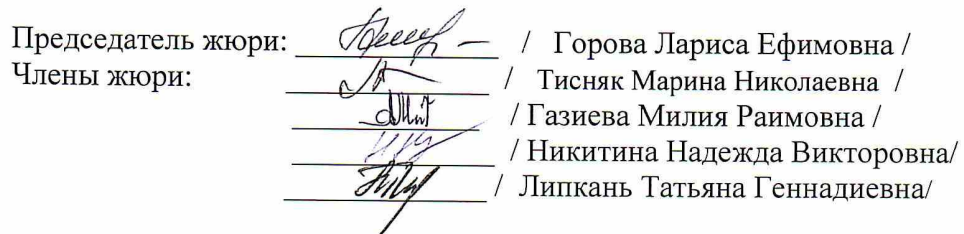 Председатель жюри: / Горова Лариса Ефимовна /
Члены жюри: / Тисняк Марина Николаевна /
/ Газиева Милия Раимовна /
/ Никитина Надежда Викторовна/
/ Липкань Татьяна Геннадиевна/